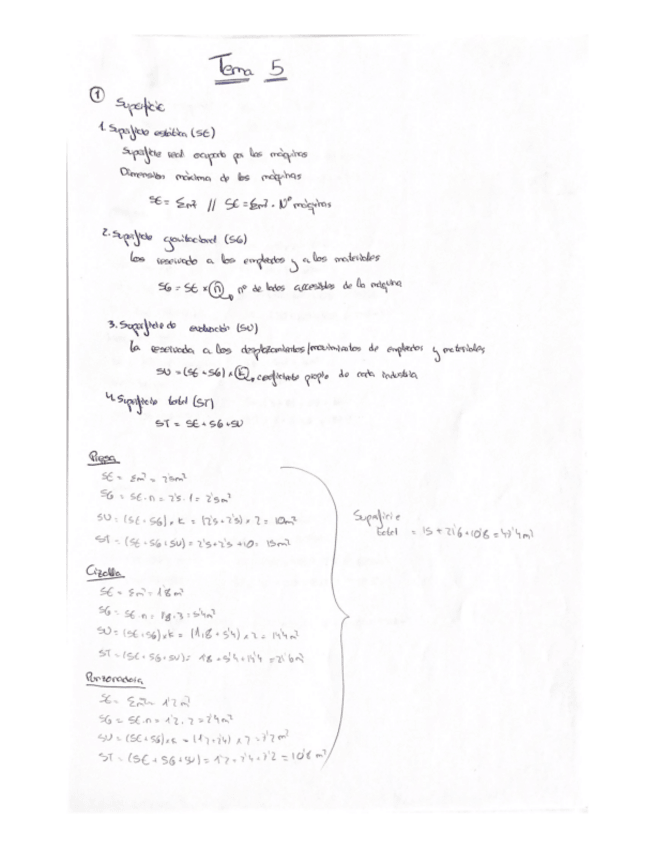 Tema 5
① Superficie
1. Superficie estática (SE)
Superficie real ocupada por las máquinas
Dimensión máxima de las máquinas
SE = Σm² // SE = Σm² · Nº máquinas
2. Superficie gravitacional (SG)
Los reservado a los empleados y a los materiales
SG = SE × n → nº de lados accesibles de la máquina
3. Superficie de evolución (SU)
La reservada a los desplazamientos/movimientos de empleados y materiales
SU = (SE + SG) × K → coeficiente propio de cada industria
4. Superficie total (ST)
ST = SE + SG + SU
Prensa
SE = Σm² = 2'5m²
SG = SE · n = 2'5 · 1 = 2'5m²
SU = (SE + SG) × K = (2'5 + 2'5) × 2 = 10m²
ST = (SE + SG + SU) = 2'5 + 2'5 + 10 = 15m²
Superficie
total = 15 + 21'6 + 10'8 = 47'4m²
Cizalla
SE = Σm² = 1'8m²
SG = SE · n = 1'8 · 3 = 5'4m²
SU = (SE + SG) × K = (1,8 + 5'4) × 2 = 14'4m²
ST = (SE + SG + SU) = 1'8 + 5'4 + 14'4 = 21'6m²
Punzonadora
SE = Σm² = 1'2m²
SG = SE · n = 1'2 · 2 = 2'4m²
SU = (SE + SG) × K = (1'2 + 2'4) × 2 = 7'2m²
ST = (SE + SG + SU) = 1'2 + 2'4 + 7'2 = 10'8m²